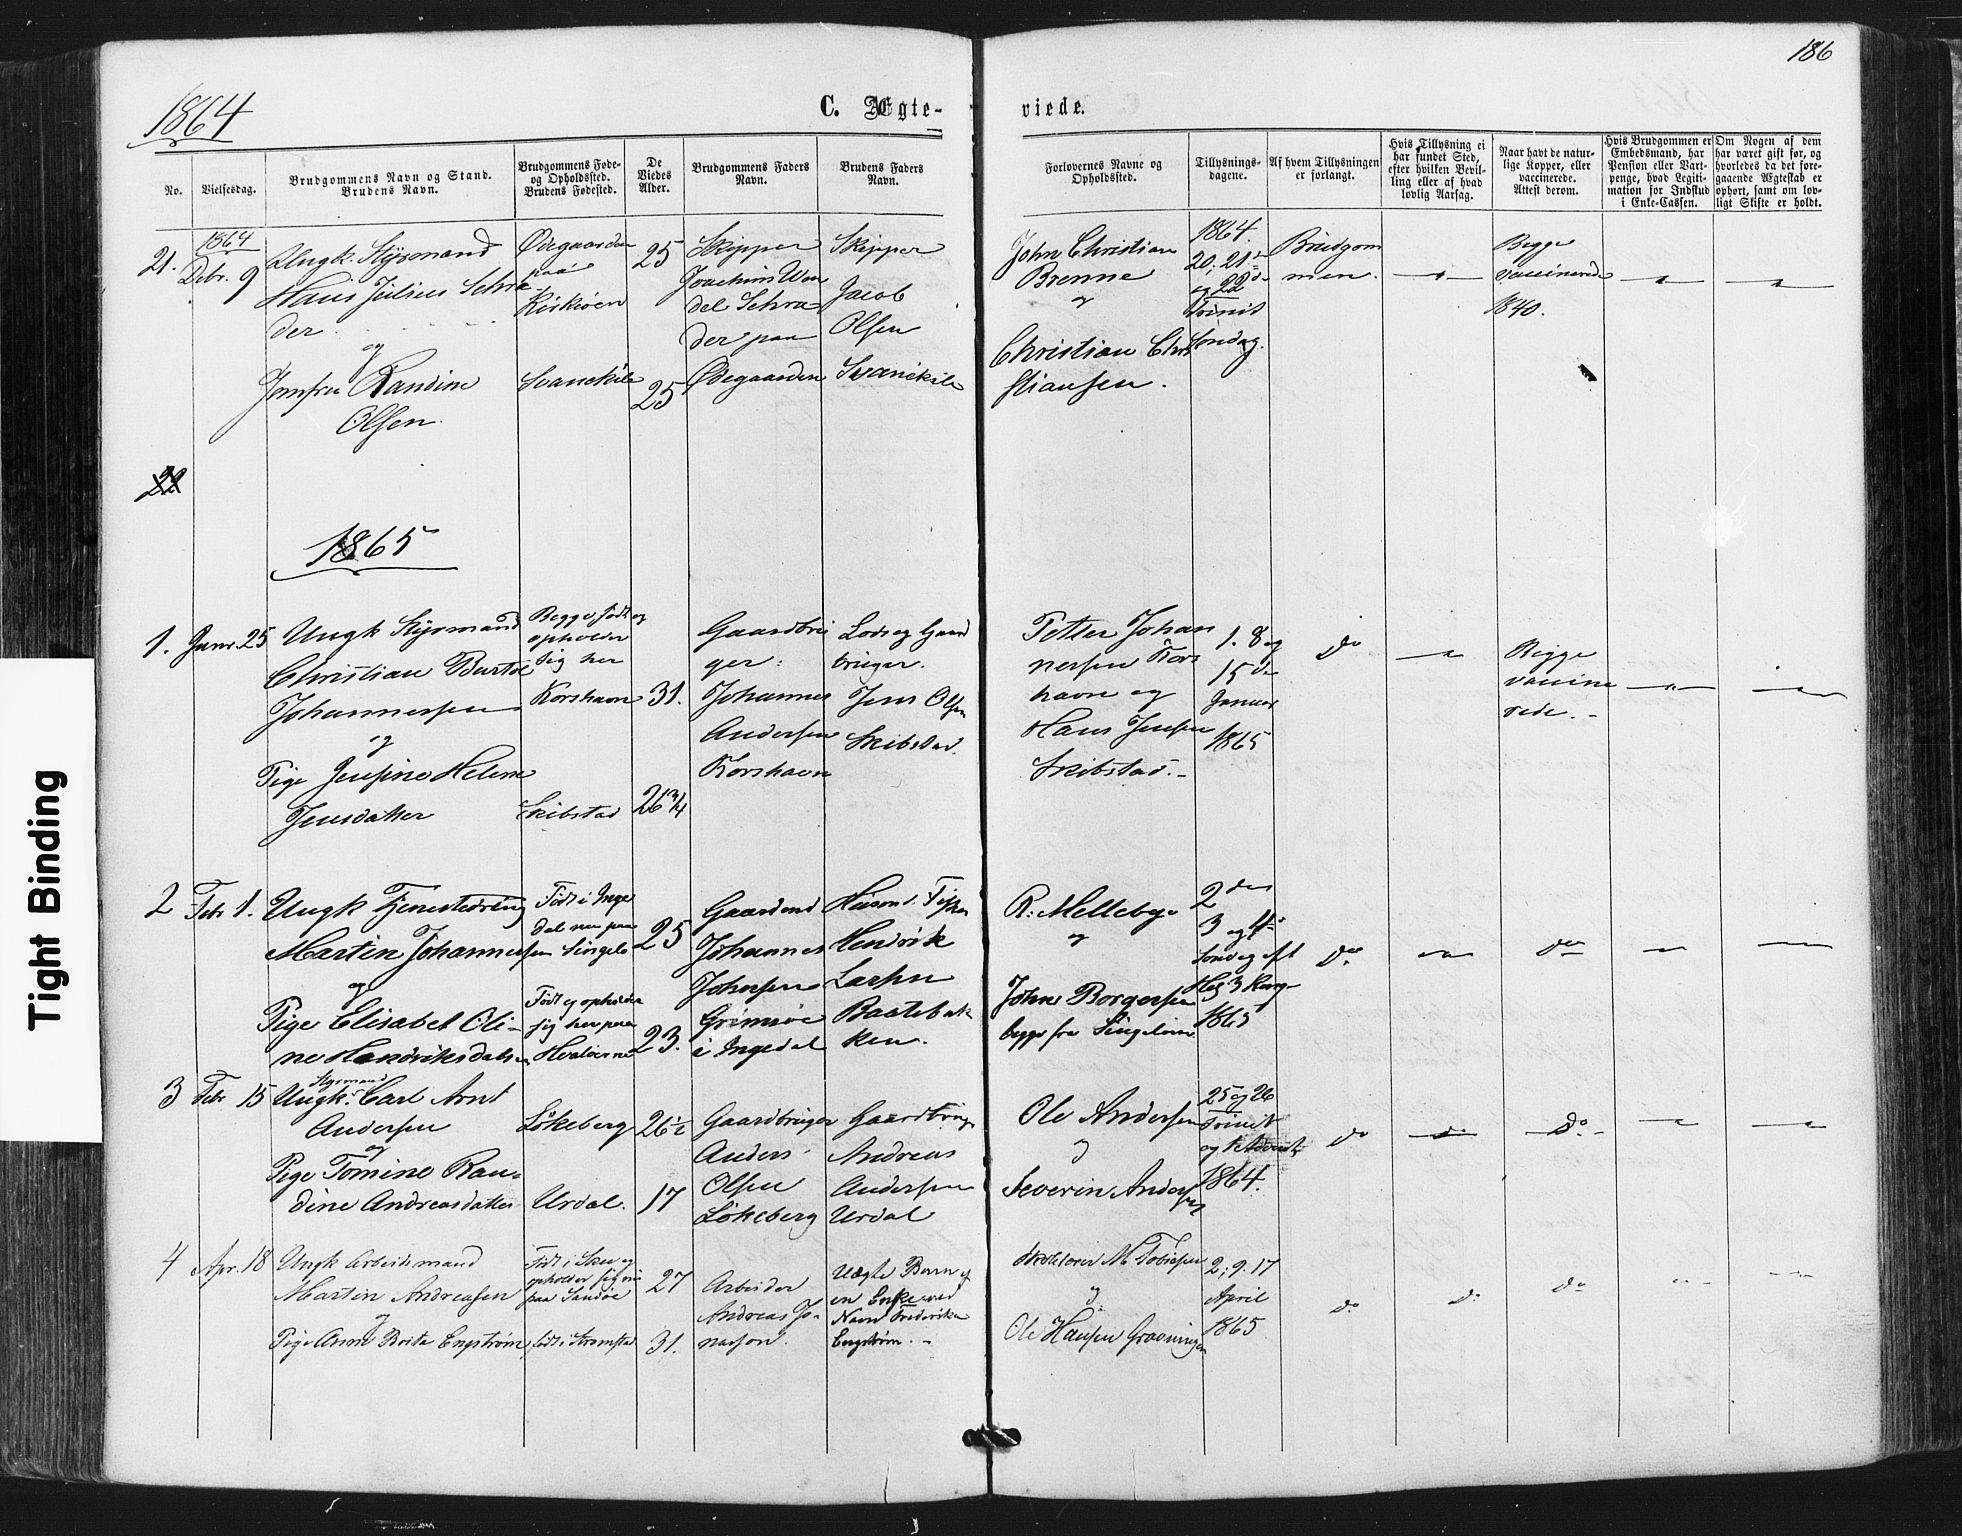 186
1864
C. Ægte-
viede.
No.
Vielsesdag.
Brudgommens Navn og Stand.
Brudens Navn.
Brudgommens Føde-
og Opholdssted.
Brudens Fødested.
De
Viedes
Alder.
Brudgommens Faders
Navn.
Brudens Faders
Navn.
Forlovernes Navne og
Opholdssted.
Tillysnings-
dagene.
Af hvem Tillysningen
er forlangt.
Hvis Tillysning ei
har fundet Sted,
efter hvilken Bevil-
ling eller af hvad
lovlig Aarsag.
Naar havt de natur-
lige Kopper, eller
vaccinerede.
Attest derom.
Hvis Brudgommen er
Embedsmand, har
Pension eller Vart-
penge, hvad Legiti-
mation for Indskud
i Enke-Cassen.
Om Nogen af dem
har været gift før, og
hvorledes da det fore-
gaaende Ægteskab er
ophørt, samt om lov-
ligt Skifte er holdt.
21.
1864
Dcbr. 9
Ungk. Styrmand
Hans Julius Schra-
der
og
Jomfru Randine
Olsen.
Ødegaarden
paa
Kirkøen
Svanekile
25
25
Skipper
Joachim Wen
del Schra-
der paa
Ødegaarden
Skipper
Jacob
Olsen
Svanekile
John Christian
Brenne
og
Christian Chri
stiansen.
1864.
20; 21de
og 22de
Trinit
Søndag.
Brudgom
men.
Begge
vaccinerede
1840.
22
1865
1.
Janr. 25
Ungk Styrmand
Christian Bartol
Johannessen
og
Pige Jensine Helene
Jensdatter
Begge født og
opholder
sig her
Korshavn
Skibstad
31.
26 3/4
Gaardbru
ger:
Johannes
Andersen
Korshavn
Lods og Gaard
bruger.
Jens Olsen
Skibstad.
Petter Johan
nersen Kors
havn og
Hans Jensen
Skibstad.-
1. 8 og
15 de
Januar
1865
Do
Begge
vaccine
rede.-
2
Febr 1.
Ungk Tjenestedreng
Martin Johannessen
og
Pige Elisabet Oli-
ne Hendriksdatter
Født i Inge
dal nu paa
Singelø
Født og opholder
sig her paa
Hvaløerne
25
23.
Gaardmd
Johannes
Johnsen
Grimsøe
i Ingedal
Husmd. Fisker
Hendrik
Larsen
Baatebak
ken.
R. Mellebye
og
John Borgersen
begge fra Singeløen
2 den
3 og 4de
Søndag eft
Hel 3 Kong-
1865
Do
Do
3
Febr 15
Styrmand
Ungk. Carl Arnt
Andersen
og
Pige Tomine Ran-
dine Andreasdatter
Løkeberg
Urdal.
26½
17
Gaardbruger
Anders
Olsen
Løkeberg
Gaardbrug
Andreas
Andersen
Urdal
Ole Andersen
og
Severin Andersen
25 og 26
Trinit
og 1 Advent
1864.
Do
do
Do
4
Apr. 18
Ungk Arbeidsmand
Martin Andreassen
og
Pige Anne Brita Engstrøm
Født i Skee og
opholder sig nu
paa Sandøe
født i Strømstad
27
31.
Arbeider
Andreas Jo-
nason
Uægte Barn af
en Enke ved
Navn Frederikke
Engstrøm.-
Skolelærer M Tobiasen
og
Ole Hansen Graaningen
2; 9. 17
April
1865
do
do
do
Tight Binding